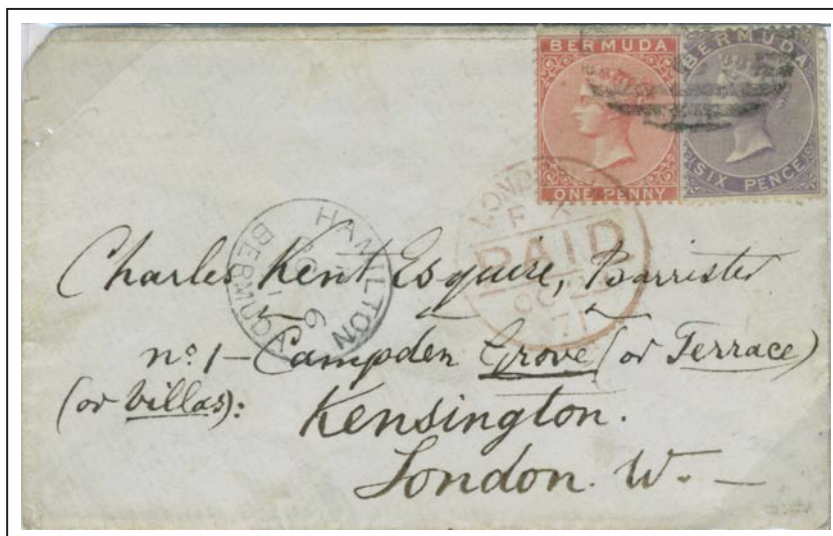 BERMUDA
ONE PENNY
BERMUDA
SIX PENCE
PAID
71
HAMILTON
BERMUDA
Charles Kent Esquire, Barrister
no. 1 – Campden Grove (or Terrace)
(or Villas):
Kensington.
London. W. –